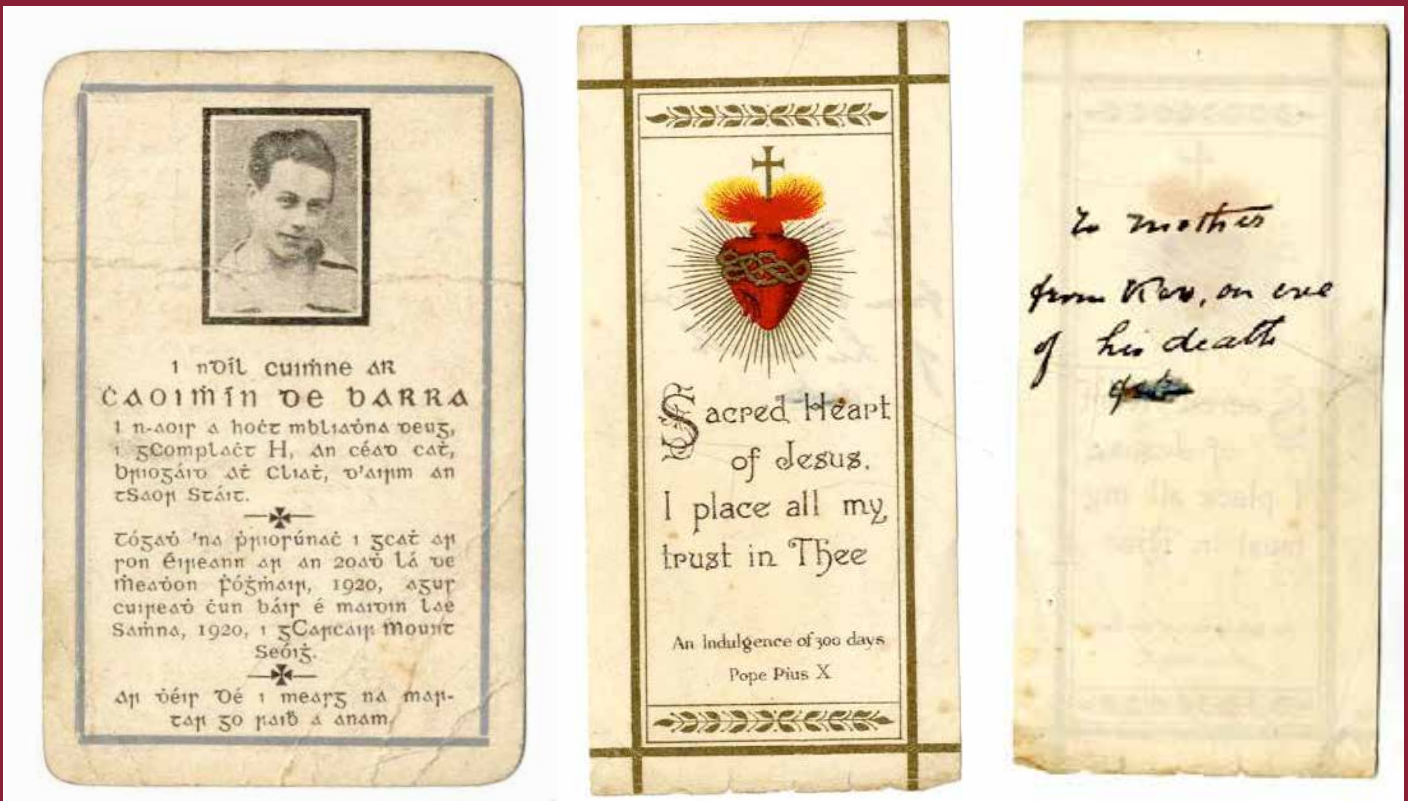 I nDíl cuiṁne ar
ĊAOIṀÍN DE BARRA
I n-aois a hoċt mbliaḋna deug,
i gComplaċt H, An Céad Caṫ,
Briogáid Áṫ Cliaṫ, d'airm an
tSaor Stáit.
Tógaḋ 'na ṗríosúnaċ i gcaṫ ar
son Éireann ar an 20aḋ lá de
Ṁeaḋon Ḟóġṁair, 1920, agus
cuireaḋ ċun báis é maidin lae
Saṁna, 1920, i gCarcair Mount
Seóiġ.
Ar ḋéis Dé i measg na mar-
tar go raiḃ a anam.
Sacred Heart
of Jesus.
I place all my
trust in Thee
An Indulgence of 300 days
Pope Pius X
To Mother
from Kev, on eve
of his death